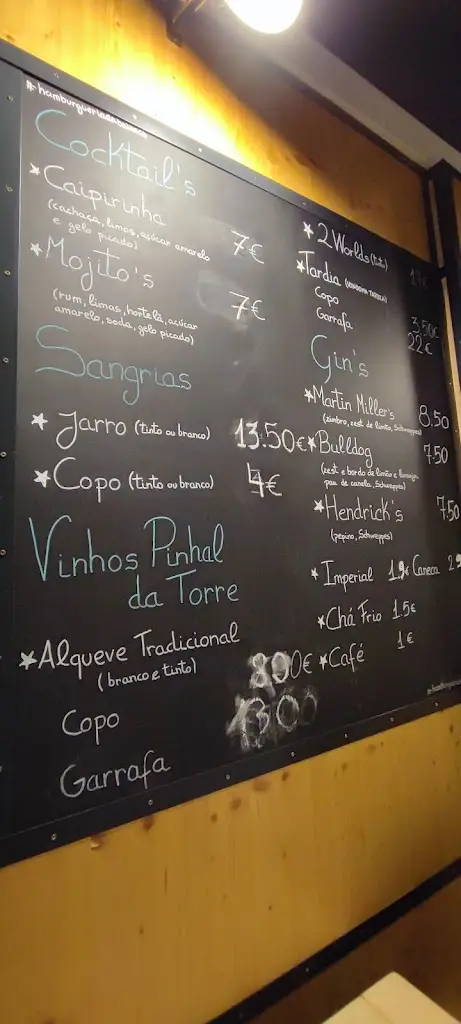 Cocktail's
★Caipirinha 7€
(cachaça, limos, açúcar amarelo
e gelo picado)
★Mojito's 7€
(rum, limas, hortelã, açúcar
amarelo, soda, gelo picado)
Sangrias
★ Jarro (tinto ou branco) 13.50€
★Copo (tinto ou branco) 4€
Vinhos Pinhal
da Torre
★Alqueve Tradicional
(branco e tinto)
Copo
Garrafa
★2 Worlds (tinto)
★Tardia
Copo 3.50€
Garrafa 22€
Gin's
★Martin Miller's 8.50
(zimbro, zest de limão, Schweppes)
★Bulldog 7.50
(zest e bordo de limão e laranja,
pau de canela, Schweppes)
★Hendrick's 7.50
(pepino, Schweppes)
★Imperial 1.9€ Caneca
★Chá Frio 1.5€
★Café 1€